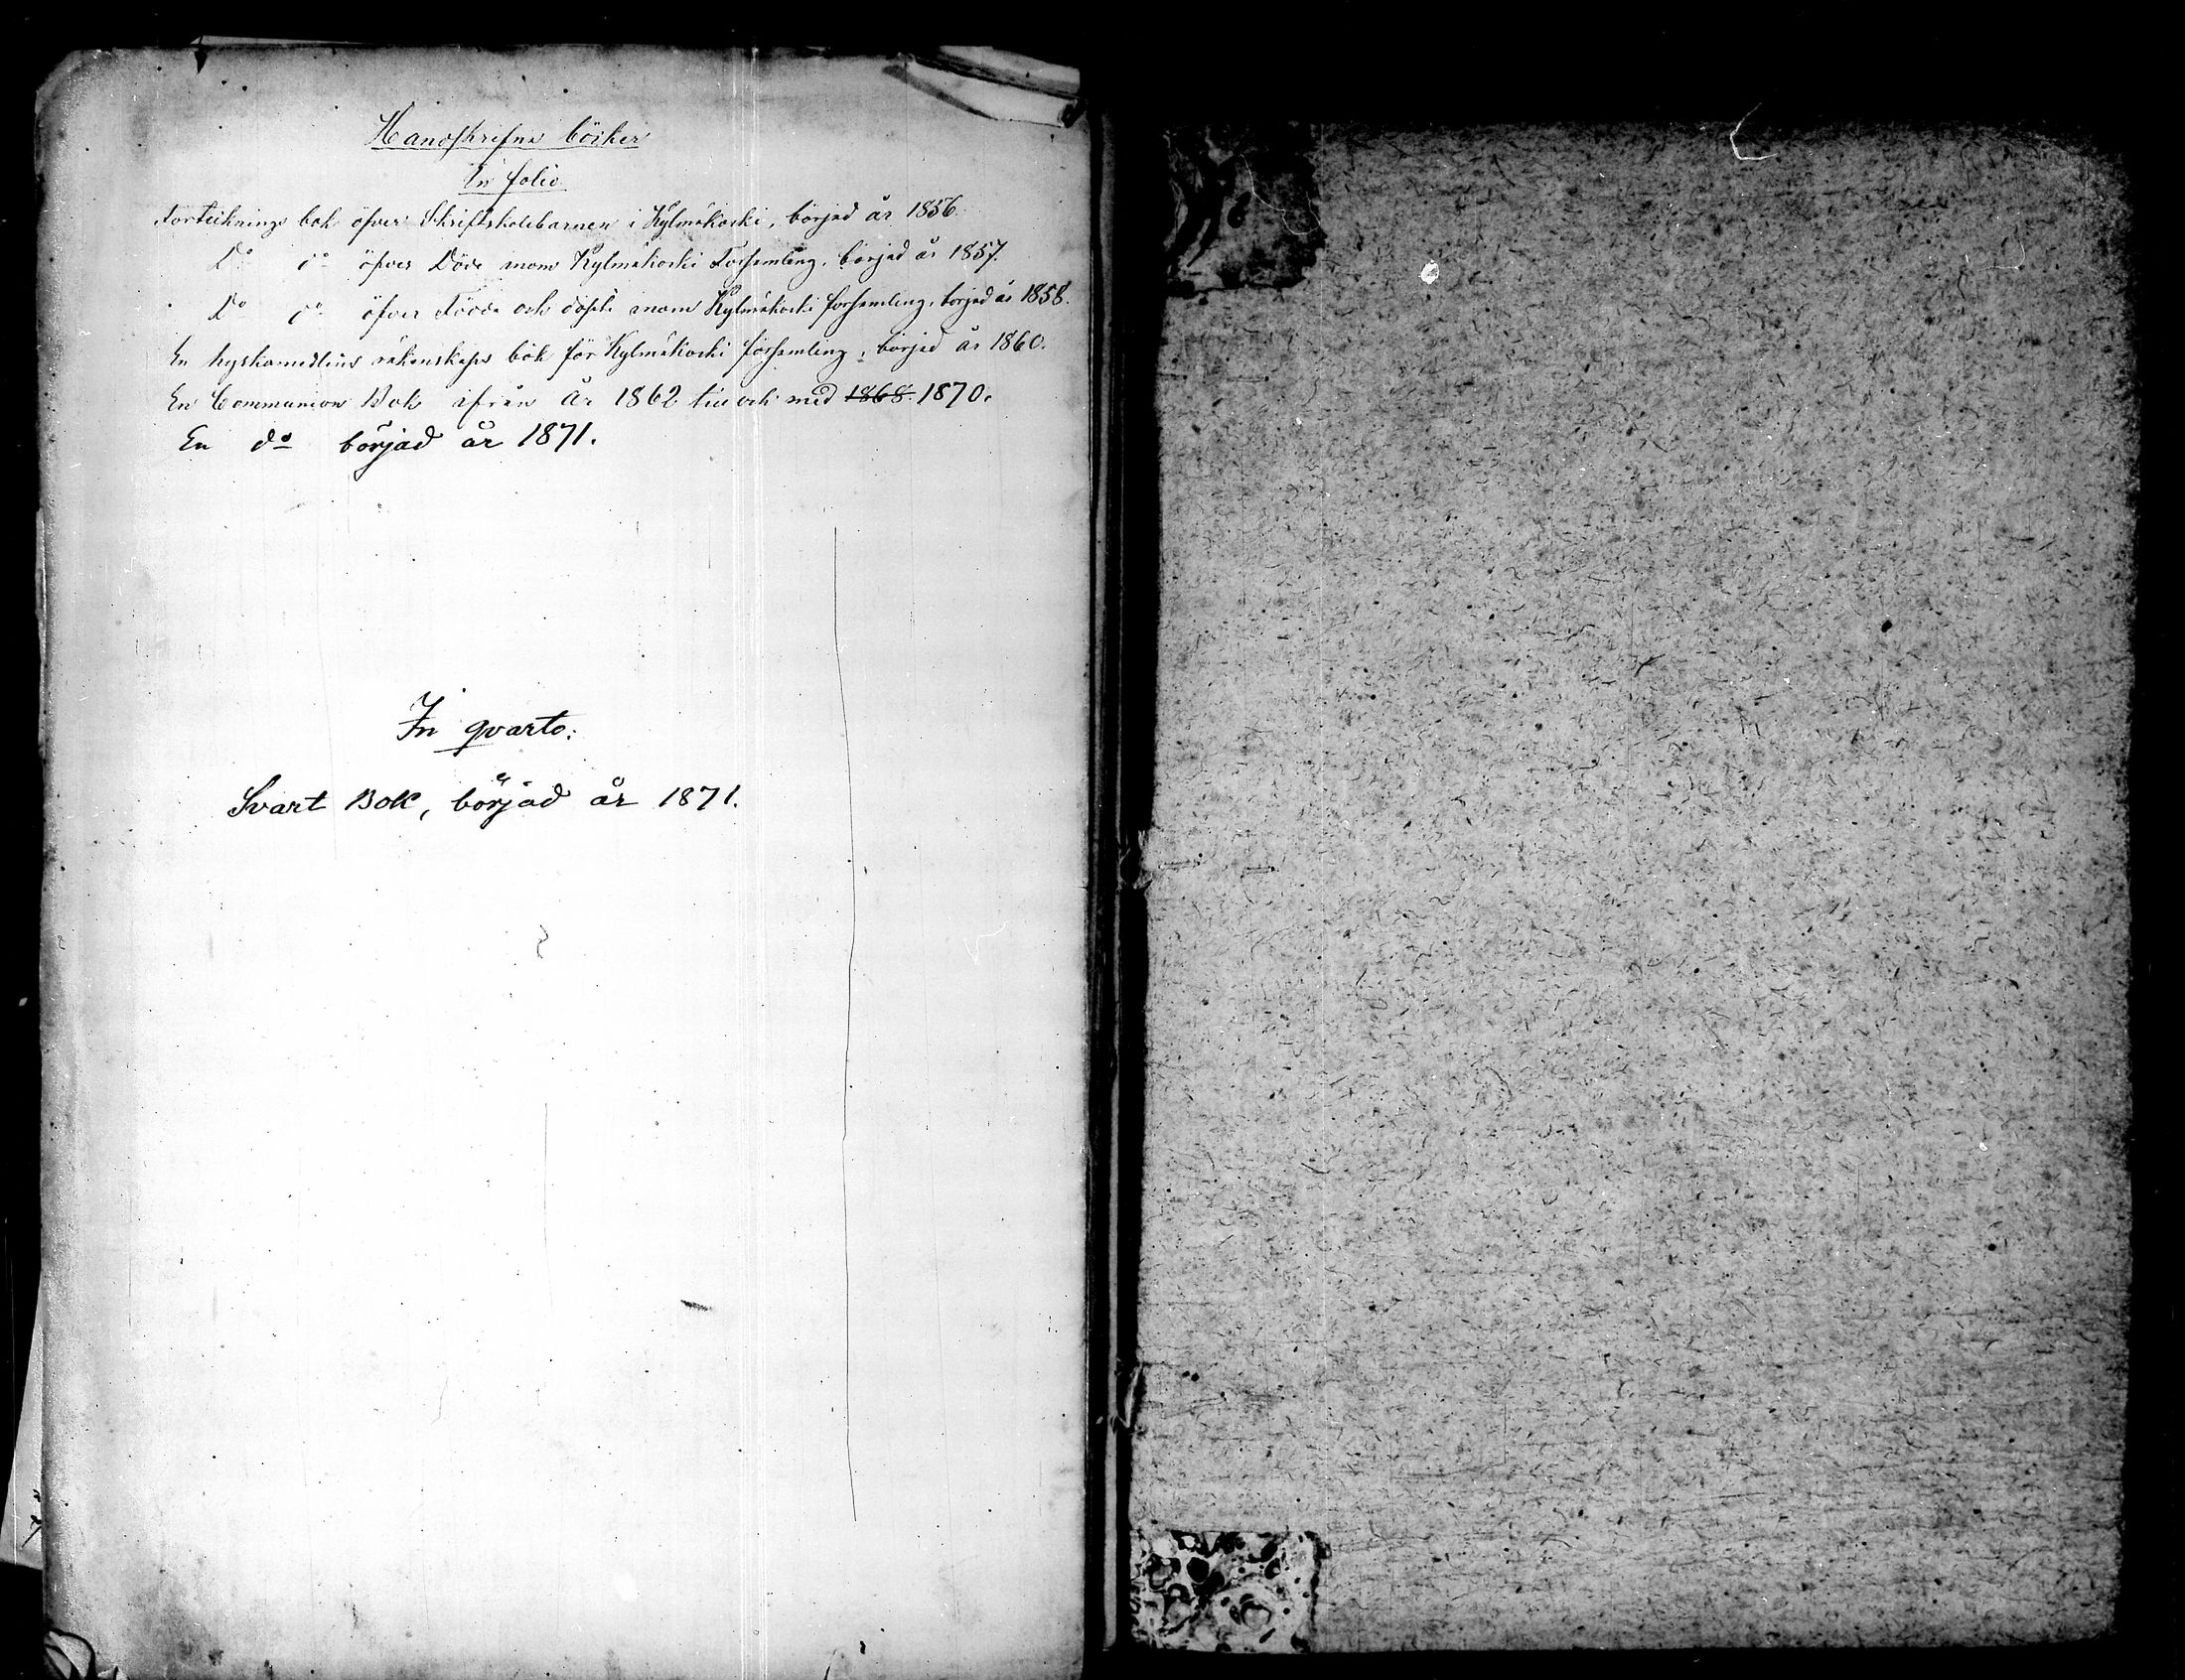 Handskrifna böcker
In folio.
Forteiknings bok öfver Skriftskolebarnen i Kylmäkoski, börjad år 1856.
Do do öfver Döde inom Kylmäkoski Forsamling, börjad år 1857.
Do do öfver Födde och döpte inom Kylmäkoski forsamling, börjad år 1858.
En kyrkomedlens räkenskaps bok för Kylmäkoski församling, börjad år 1860.
En Communion Bok ifrån År 1862 till och med 1868. 1870.
En do börjad år 1871.
In qvarto:
Svart Bok, börjad år 1871.